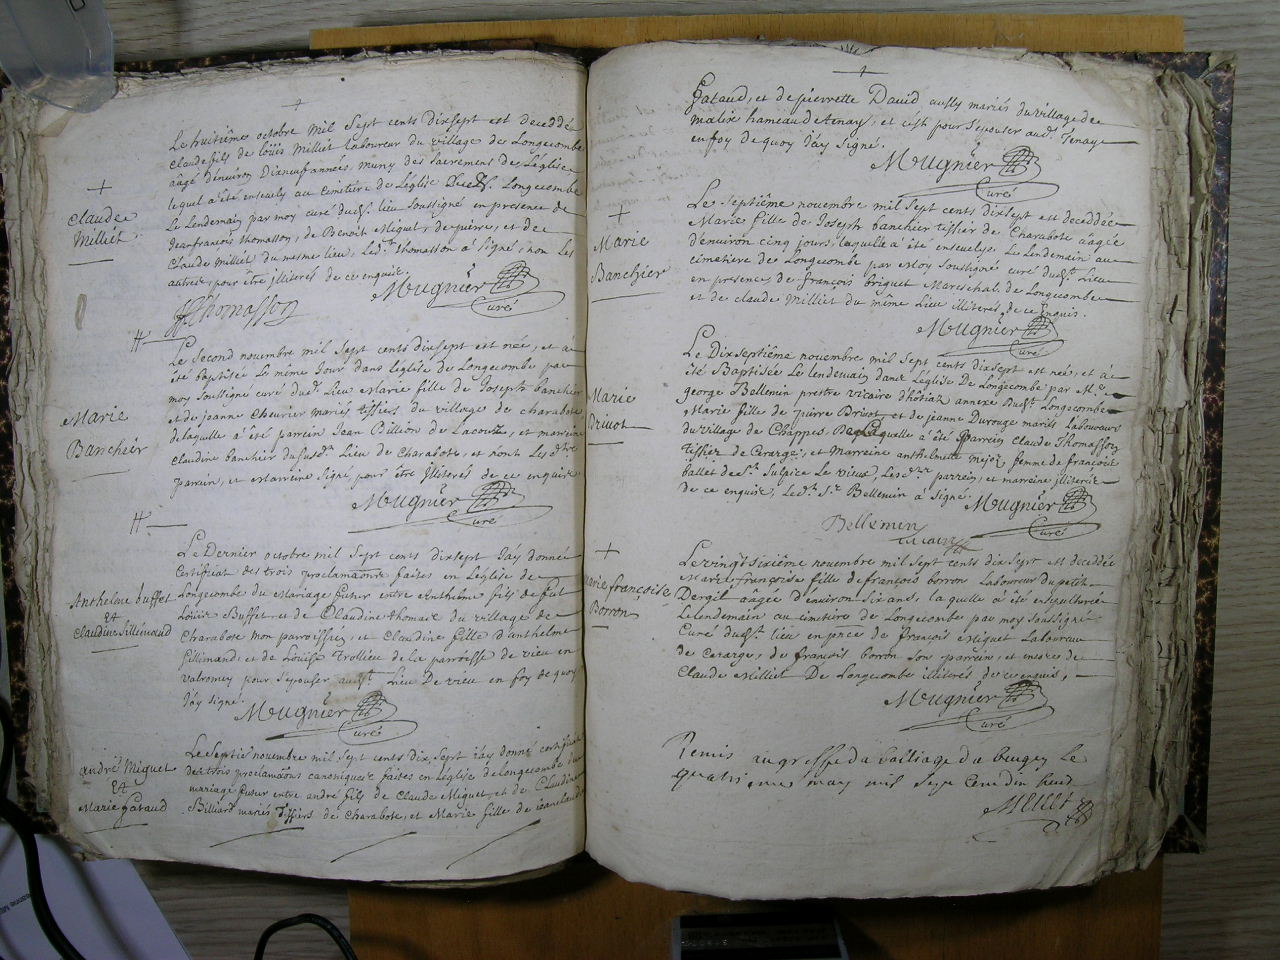 Le huitiême octobre mil sept cents dixsept est deceddé
claude fils de loüis Milliet laboureur du village de Longecombe
âagé d'enuiron dixneuf années, muny des sacrements de L'église
lequel a été enseuely au cemetière de L'église Longecombe
Le Lendemain par moy curé dud. lieu soussigné en presence de
Jeanfrançois thomasson, de Benoit Miguet, de pierre, et de
Claude Milliet du mesme lieu, Led.t thomasson a signé, non Les
autres pour être jlliteres de ce enquis.
claude
Milliet
Mugnier
Curé
Thomasson
Le second novembre mil sept cents dixsept est née, et a
été baptisée le même jour dans l'église de Longecombe par
moy soussigné curé dud. Lieu Marie fille de Joseph banchier
et de jeanne cheurier mariés tissiers du village de charabote
de laquelle a été parrein Jean Billion de Lacoux, et marreine
claudine banchier du susd. Lieu de Charabote, et n'ont Les d.
parrein, et Marreine signé, pour être jlliteres de ce enquis
Marie
Banchier
Mugnier
Curé
Le Dernier octobre mil sept cents dixsept j'ay donné
Certificat des trois proclamaons faites en L'église de
Longecombe du Mariage futur entre Anthelme fils de fut
Loüis Buffet, et de Claudine thomace du village de
Charabote mon parroissien, et Claudine fille d'anthelme
sillimand, et de Loüise Trollieu de la parroisse de vieu en
valromey pour s'epouser aud. Lieu De vieu en foy de quoy
j'ay signé.
Anthelme buffet
Et
Claudine Sillimaud
Mugnier
Curé
Le Septie novembre mil sept cents dix sept j'ay donné certificat
des trois proclamaons canoniques faites en L'église de Longecombe du
mariage futur entre andré fils de Claude Miguet, et de Claudine
Billiard mariés Tissiers de Charabote, et Marie fille de
andré Miguet
Et
Marie gataud
Gataud, et de pierrette David aussy mariés du village de
malix hameau de tenay, et c'est pour s'epouser aud. Tenay
en foy de quoy j'ay signé.
Mugnier
Curé
Le Septiême novembre mil sept cents dixsept est deceddée
Marie fille de Joseph banchier tissier de Charabote âagée
d'enuiron cinq jours, laquelle a été enseuelye Le Lendemain au
cimetiere de Longecombe par Moy soussigné curé dud. Lieu
en presence de françois briguet Mareschal de Longecombe
et de claude Milliet du même Lieu jlliteres de ce enquis.
Marie
Banchier
Mugnier
Curé
Le Dixseptiême novembre mil sept cents dixsept est née, et a
été Baptisée Le lendemain dans L'église De Longecombe par M.e
george Bellemin prestre vicaire d'hôtiat annexe dud. Longecombe
Marie fille de pierre Driuot, et de jeanne Durouge mariés Laboureurs
du village de Chappes, De Laquelle a été parrein Claude Thomasson
tissier de Cerarge, et Marreine anthelmette femme de françois
ballet de S.t Sulpice Le vieux, Les parrein, et marreine jlliteres
de ce enquis, Led. S.r Bellemin a signé.
Marie
Driuot
Mugnier
Curé
Bellemin
vicaire
Le vingt sixiême novembre mil sept cents dix sept est deceddée
Marie françoise fille de françois borron Laboureur du petit
Dergit âagée d'enuiron six ans, la quelle a été ensepulturée
Le lendemain au cimetiere de Longecombe par moy soussigné
Curé dud. lieu en pnce de françois Miguet Laboureur
de Cerarge, de françois borron son parrein, et encore de
Claude Milliet De Longecombe jlliteres de ce enquis,
Marie françoise
Borron
Mugnier
Curé
Remis au greffe du balliage du bugey le
quatrieme may mil sept cent dix huit
Millet